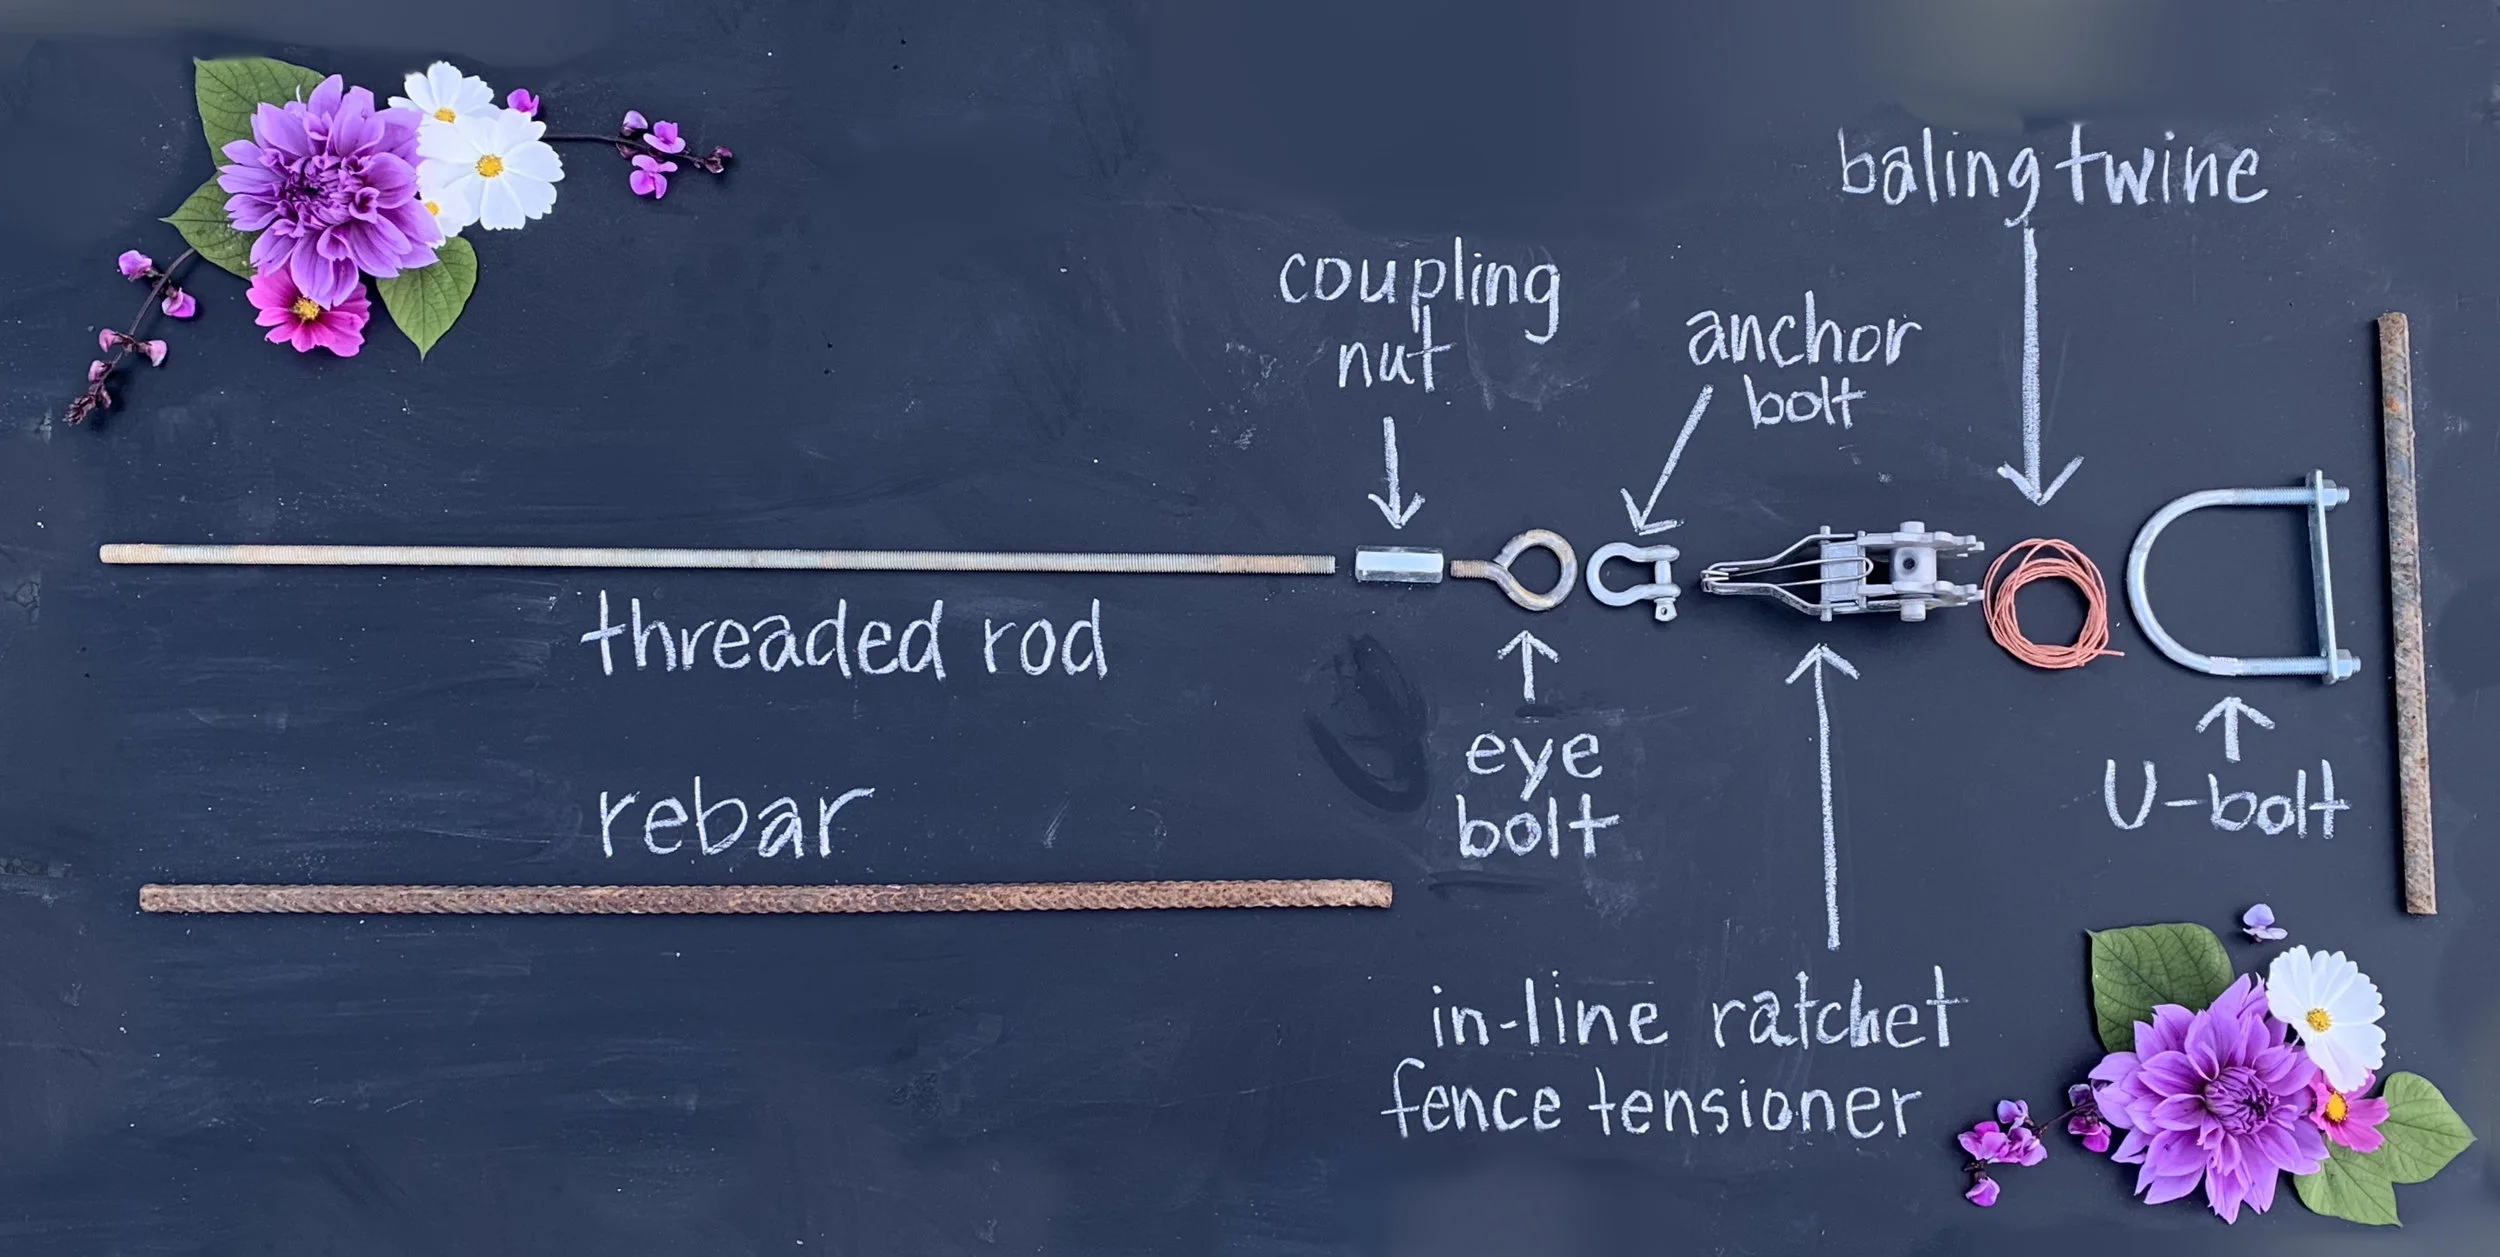 baling twine
coupling
nut
anchor
bolt
threaded rod
eye
bolt
U-bolt
rebar
in-line ratchet
fence tensioner